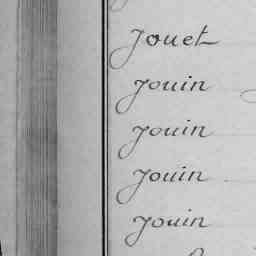 Jouet
Jouin
Jouin
Jouin
Jouin